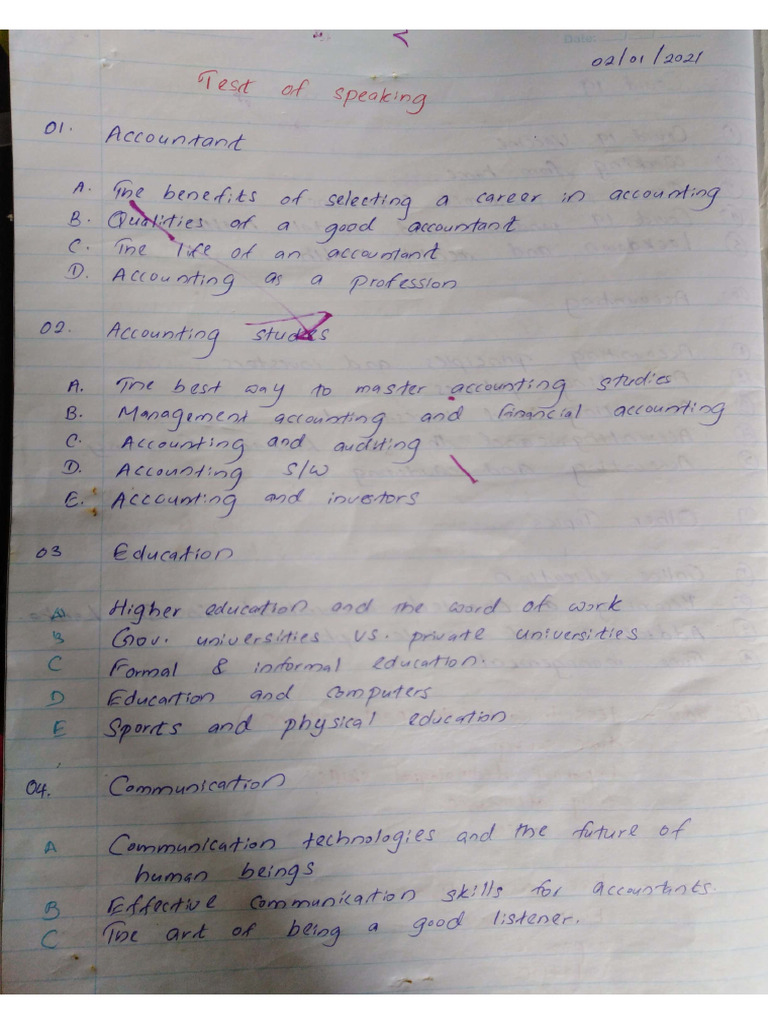 02/01/2021
Test of speaking
01. Accountant
A. The benefits of selecting a career in accounting
B. Qualities of a good accountant
C. The life of an accountant
D. Accounting as a profession
02. Accounting studies
A. The best way to master accounting studies
B. Management accounting and financial accounting
C. Accounting and auditing
D. Accounting S/W
E. Accounting and investors
03 Education
A Higher education and the word of work
B Gov. universities vs. private universities
C Formal & informal education.
D Education and computers
E Sports and physical education
04. Communication
A Communication technologies and the future of
human beings
B Effective communication skills for accountants.
C The art of being a good listener.